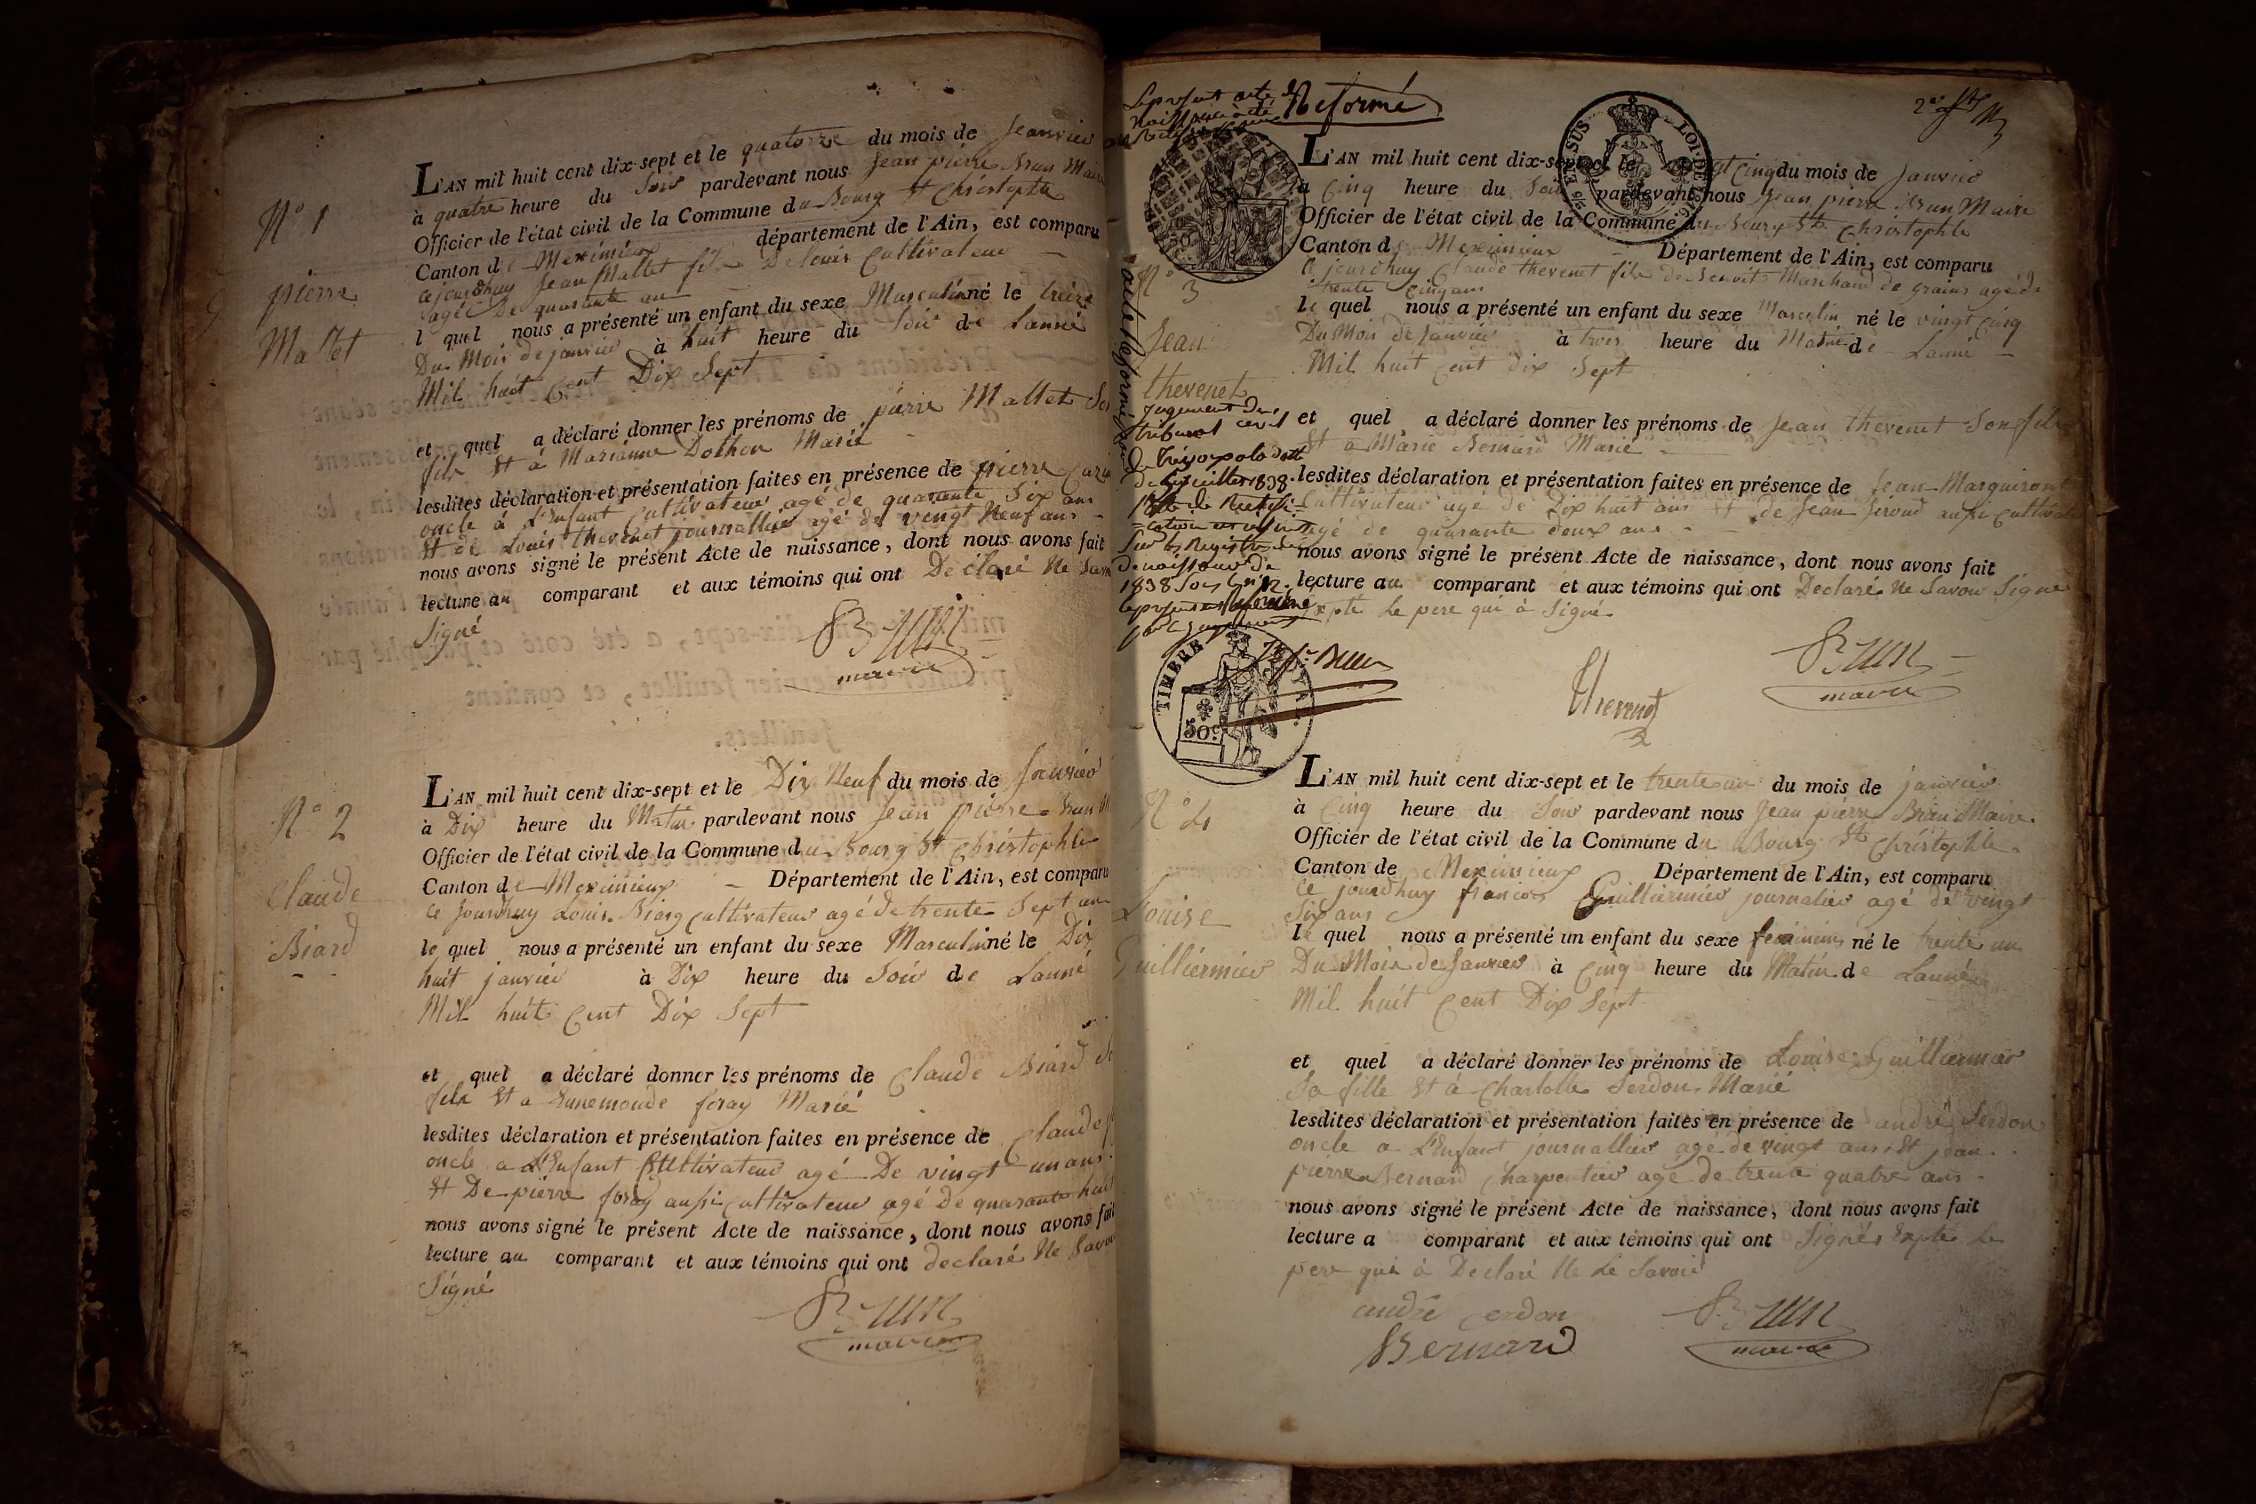 N° 1
pierre
Mallet
L'AN mil huit cent dix-sept et le quatorze du mois de Jeanvier
à quatre heure du Soir pardevant nous Jean pierre Brun Maire
Officier de l'état civil de la Commune du Bourg St Christophe
Canton de Meximieux département de l'Ain, est comparu
cejourdhuy Jean Mallet fils De louis Cultivateur
agé De quarante an
l quel nous a présenté un enfant du sexe Masculin né le treize
Du Mois de janvier à huit heure du Soir de Lanné
Mil huit Cent Dix Sept
et quel a déclaré donner les prénoms de pierre Mallet Son
fils Et à Marianne Dothon Marié
lesdites déclaration et présentation faites en présence de pierre
oncle à L'Enfant Cultivateur agé de quarante Six ans
Et de Louis thevenet journallier agé de vengt Neuf ans
nous avons signé le présent Acte de naissance, dont nous avons fait
lecture au comparant et aux témoins qui ont Déclaré Ne Savoir
Signé
Brun
maire
N° 2
Claude
Biard
L'AN mil huit cent dix-sept et le Dix Neuf du mois de Janvier
à Dix heure du Matin pardevant nous Jean pierre Brun
Officier de l'état civil de la Commune du Bourg St Christophe
Canton de Meximieux Département de l'Ain, est comparu
Ce jourdhuy Louis Biard Cultivateur agé de trente Sept an
le quel nous a présenté un enfant du sexe Masculin né le Dix
huit janvier à Dix heure du Soir de Lanné
Mil huit Cent Dix Sept
et quel a déclaré donner les prénoms de Claude Biard
fils Et a Ennemonde foray Marié
lesdites déclaration et présentation faites en présence de Claude
oncle a L'Enfant Cultivateur agé De vingt un ans
Et De pierre foray aussi Cultivateur agé De quarante huit
nous avons signé le présent Acte de naissance, dont nous avons fait
lecture au comparant et aux témoins qui ont declaré Ne Savoir
Signé
Brun
maire
Le present acte
Réformé
2e
EN SUS LOI DE
N° 3
Jean
thevenet
jugement du
tribunal civil
de Trévoux
de juillet 1838
Sur les Registres de
de naissance de
1838 Sous le n° 12
TIMBRE ROYAL
50c
L'AN mil huit cent dix-sept et le vingt Cinq du mois de Janvier
à Cinq heure du Soir pardevant nous Jean pierre Brun Maire
Officier de l'état civil de la Commune du Bourg St Christophe
Canton de Meximieux Département de l'Ain, est comparu
Ce jourdhuy Claude thevenet fils de Benoit Marchand de grains agé de
trente Cinq ans
le quel nous a présenté un enfant du sexe Masculin né le vingt Cinq
Du Mois de Janvier à trois heure du Matin de Lanné
Mil huit Cent Dix Sept
et quel a déclaré donner les prénoms de Jean thevenet Son fils
Et a Marie Bernard Marié
lesdites déclaration et présentation faites en présence de Jean
Cultivateur agé de Dix huit ans Et de Jean Giroud aussi Cultivateur
agé de quarante deux ans
nous avons signé le présent Acte de naissance, dont nous avons fait
lecture au comparant et aux témoins qui ont Declaré Ne Savoir Signé
Expté Le pere qui à Signé
Thevenet
Brun
maire
N° 4
Louise
Guilliermier
L'AN mil huit cent dix-sept et le trente un du mois de janvier
à Cinq heure du Soir pardevant nous Jean pierre Brun Maire
Officier de l'état civil de la Commune du Bourg St Christophe
Canton de Meximieux Département de l'Ain, est comparu
Ce jourdhuy francois Guilliermier journalier agé de vingt
Six ans
l quel nous a présenté un enfant du sexe feminin né le trente un
Du Mois de Janvier à Cinq heure du Matin de Lanné
Mil huit Cent Dix Sept
et quel a déclaré donner les prénoms de Louise Guilliermier
Sa fille Et à Charlotte Serdon Marié
lesdites déclaration et présentation faites en présence de andré Serdon
oncle a L'Enfant journallier agé de vingt ans Et jean
pierre Bernard Charpentier agé de trente quatre ans
nous avons signé le présent Acte de naissance, dont nous avons fait
lecture a comparant et aux témoins qui ont Signés Expté Le
pere qui à Declaré Ne Le Savoir
andré Cerdon
Bernard
Brun
maire